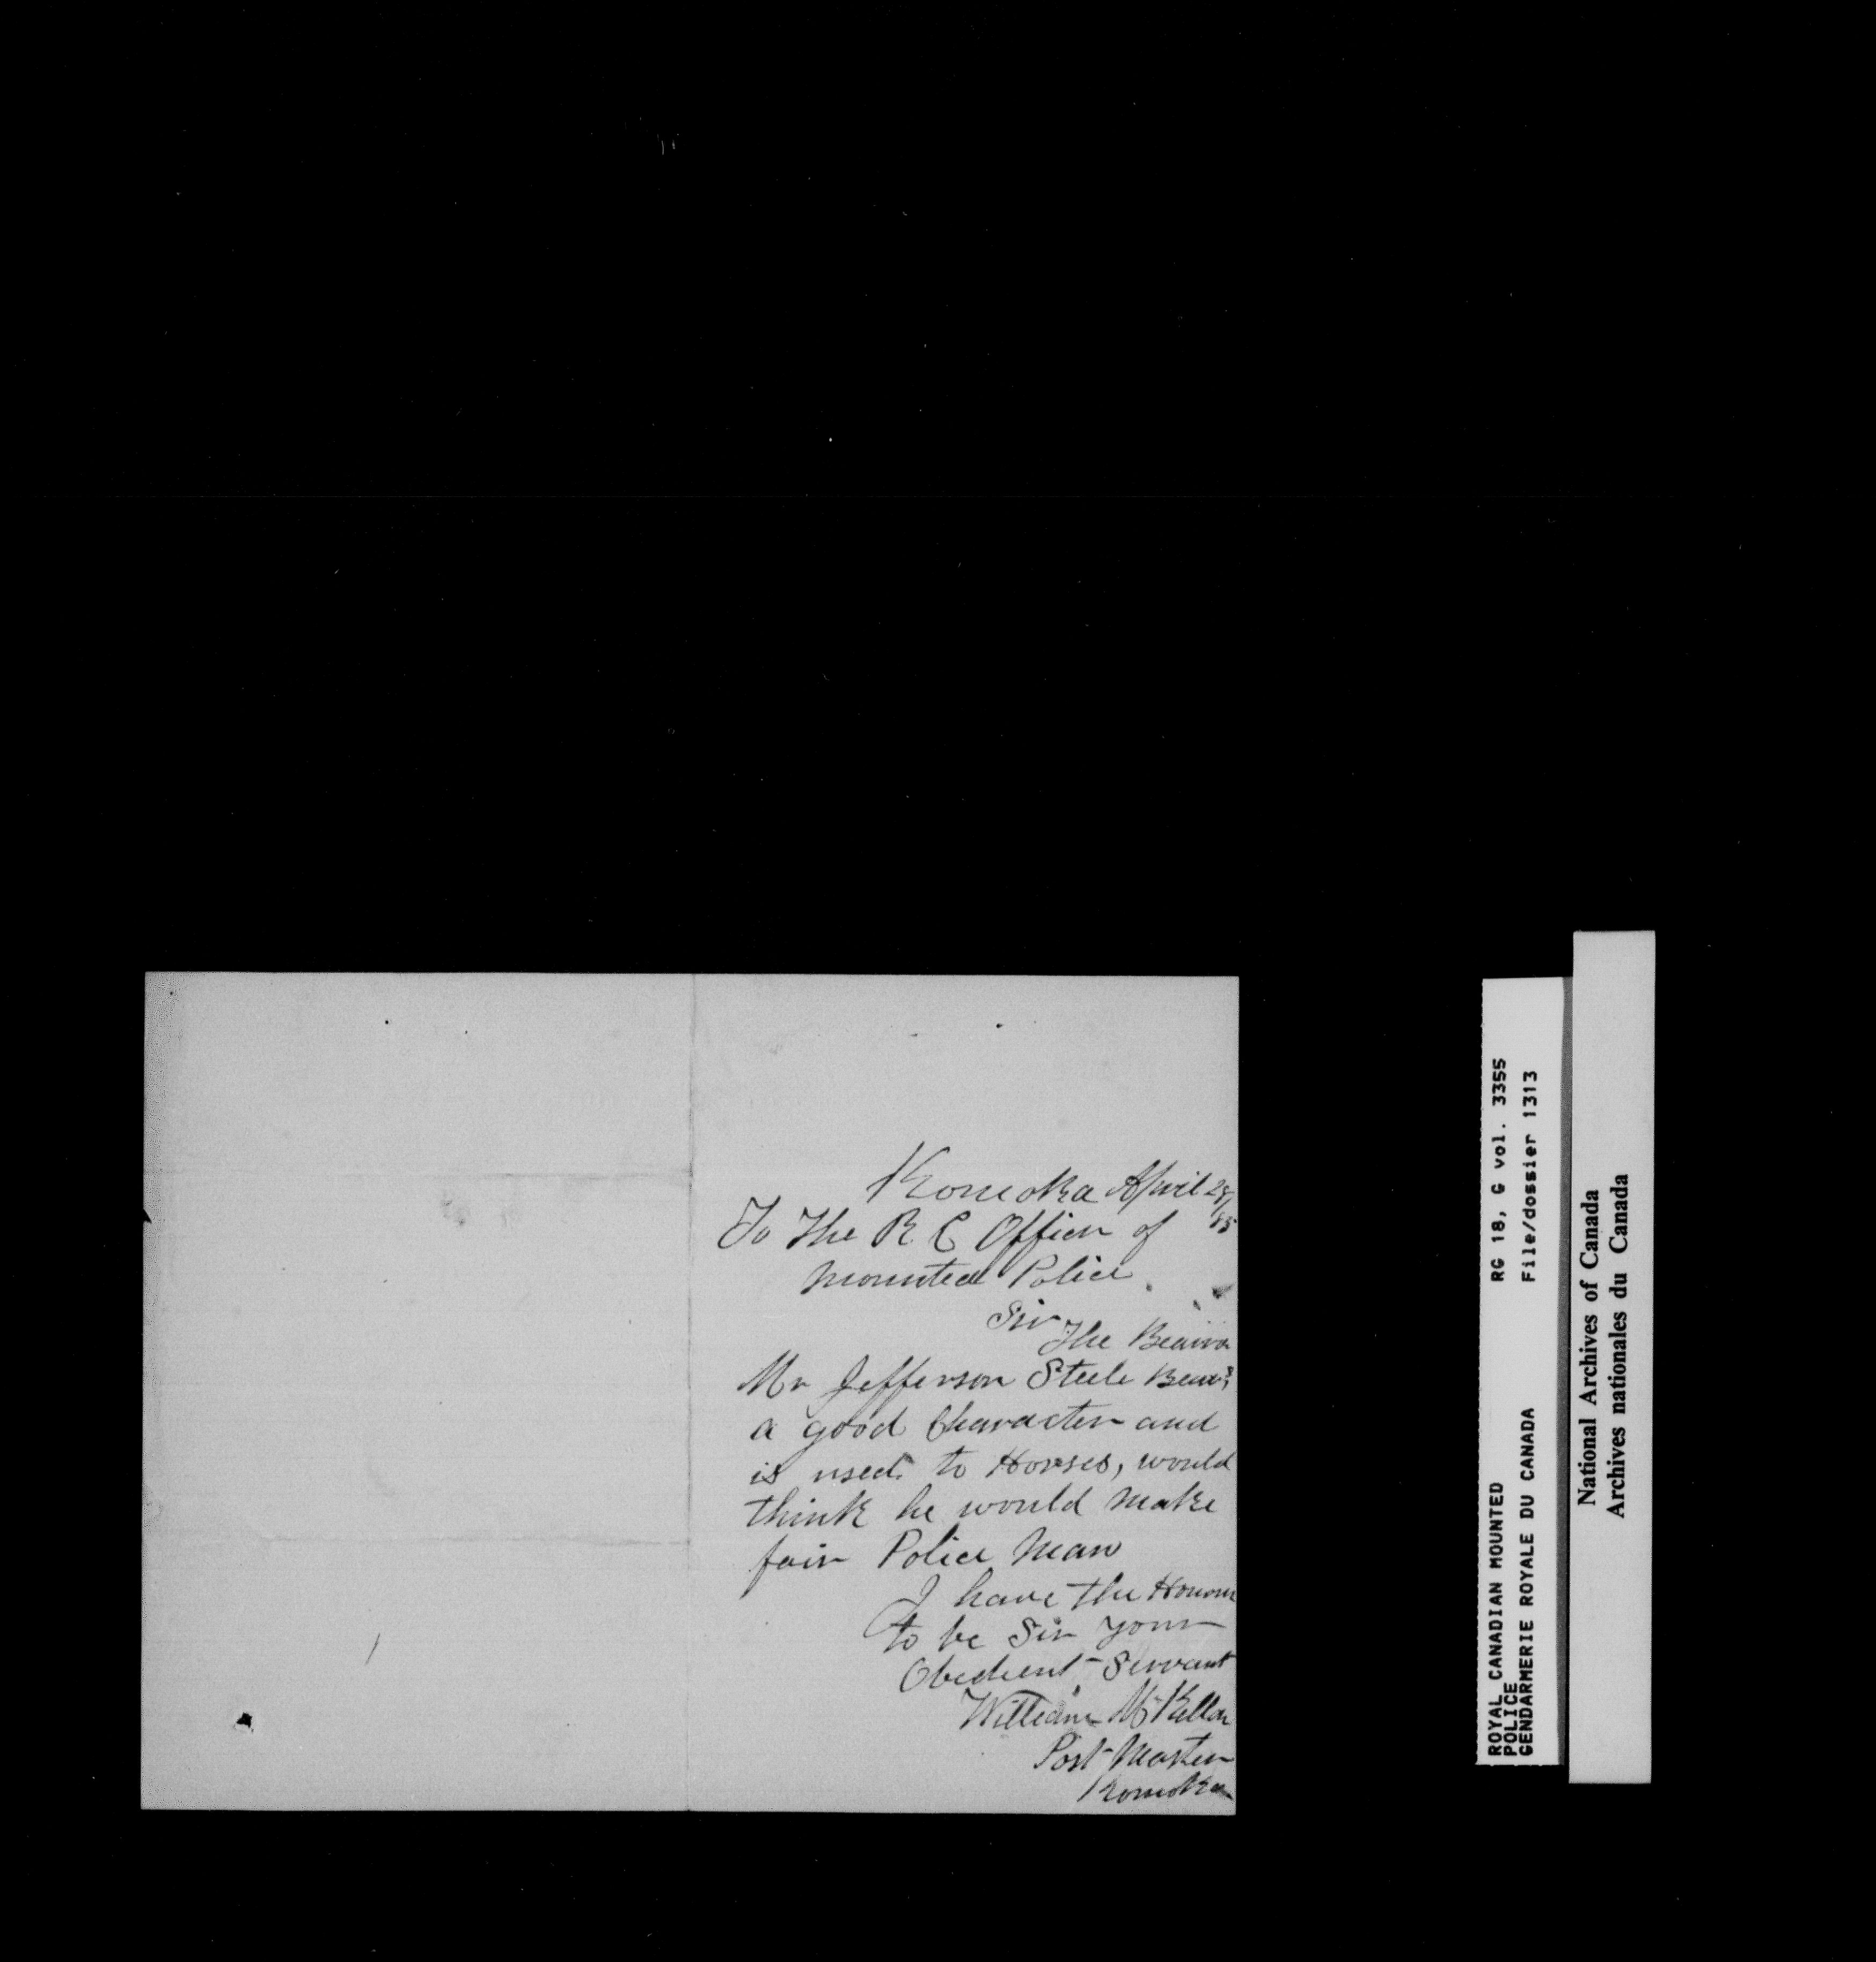 Komoka April 28/85
To The R C Officer of
Mounted Police
Sir
The Bearer
Mr Jefferson Steele Bears
a good Character and
is used to Horses, would
think he would make
fair Police Man
I have the Honour
to be Sir your
Obedient Servant
William McKellar
Post Master
Komoka
ROYAL CANADIAN MOUNTED RG 18, G vol. 3355
POLICE File/dossier 1313
GENDARMERIE ROYALE DU CANADA
National Archives of Canada
Archives nationales du Canada